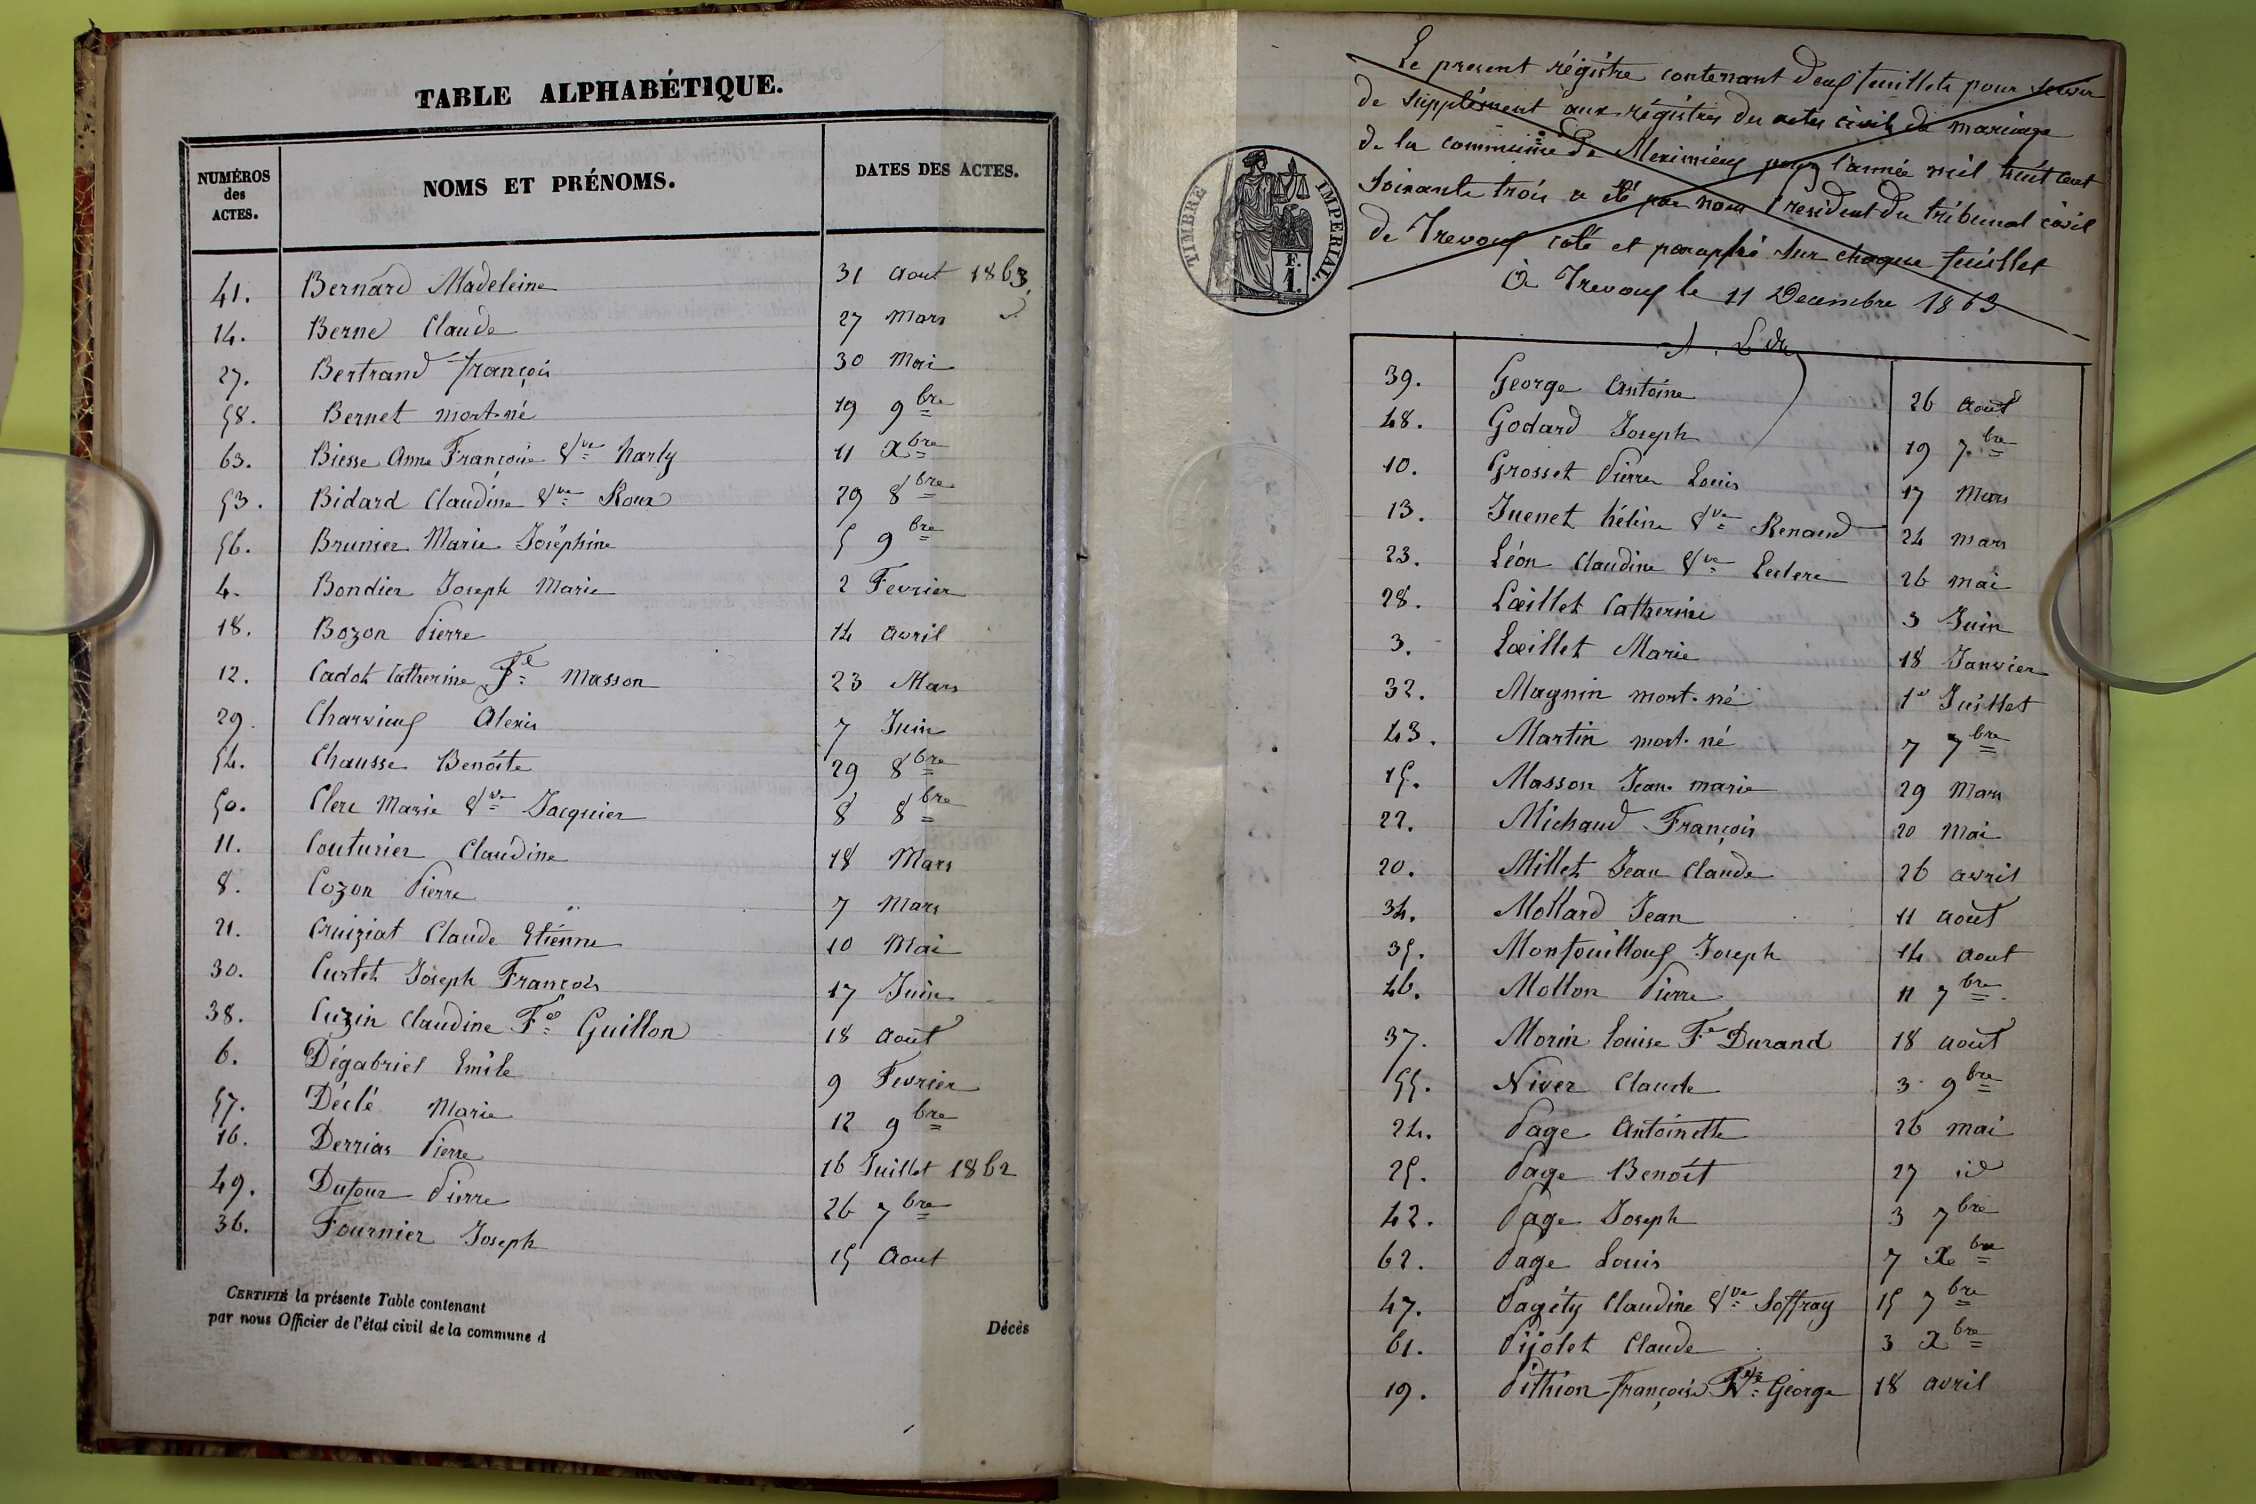 TABLE ALPHABÉTIQUE.
NUMÉROS des ACTES. NOMS ET PRÉNOMS. DATES DES ACTES.
41. Bernard Madeleine 31 aout 1863.
14. Berne Claude 27 Mars
27. Bertrand François 30 Mai
58. Bernet mort-né 19 9bre
63. Biesse Anne Françoise Vveharly 11 Xbre
53. Bidard Claudine Vve Roux 29 8bre
56. Brunier Marie Joséphine 5 9bre
4. Bondier Joseph Marie 2 Fevrier
18. Bozon Pierre 14 avril
12. Cadot Catherine Fe Masson 23 Mars
29. Charvieux Alexis 7 Juin
54. Chausse Benoîte 29 8bre
50. Clerc Marie Vve Jacquier 8 8bre
11. Couturier Claudine 18 Mars
8. Cozon Pierre 7 Mars
21. Cruiziat Claude Etienne 10 Mai
30. Curtet Joseph François 17 Juin
38. Cuzin Claudine Fe Guillon 18 Août
6. Dégabriel Emile 9 Fevrier
57. Déclé Marie 12 9bre
16. Derrias Pierre 16 Juillet 1862
49. Dufour Pierre 26 7bre
36. Fournier Joseph 15 Aout
CERTIFIÉ la présente Table contenant
par nous Officier de l'état civil de la commune d
Décès
Le present régistre contenant deux feuillets pour servir
de supplément aux régistres du actes civils de mariage
de la commune de Meximieux pour l'année mil huit cent
soixante trois a été par nous President du tribunal civil
de Trevoux coté et paraphé sur chaque feuillet
à Trevoux le 11 Decembre 1863
TIMBRE IMPERIAL.
F.
1.
39. George Antoine 26 août
48. Godard Joseph 19 7bre
10. Grosset Pierre Louis 17 Mars
13. Juenet hélène Vve Renaud 24 mars
23. Léon Claudine Vve Leclerc 26 mai
28. Lœillet Catherine 3 Juin
3. Lœillet Marie 18 Janvier
32. Magnin mort-né 1er Juillet
43. Martin mort-né 7 7bre
15. Masson Jean marie 29 Mars
22. Michaud François 20 Mai
20. Millet Jean Claude 26 avril
34. Mollard Jean 11 août
35. Montouilloux Joseph 14 aout
46. Mollon Pierre 11 7bre
37. Morin Louise Fe Durand 18 août
55. Niver Claude 3 9bre
24. Page Antoinette 26 mai
25. Page Benoît 27 id
42. Page Joseph 3 7bre
62. Page Louis 7 Xbre
47. Pagéty Claudine Vve Soffray 15 7bre
61. Pijolet Claude 3 Xbre
19. Pithion françoise Vve George 18 avril